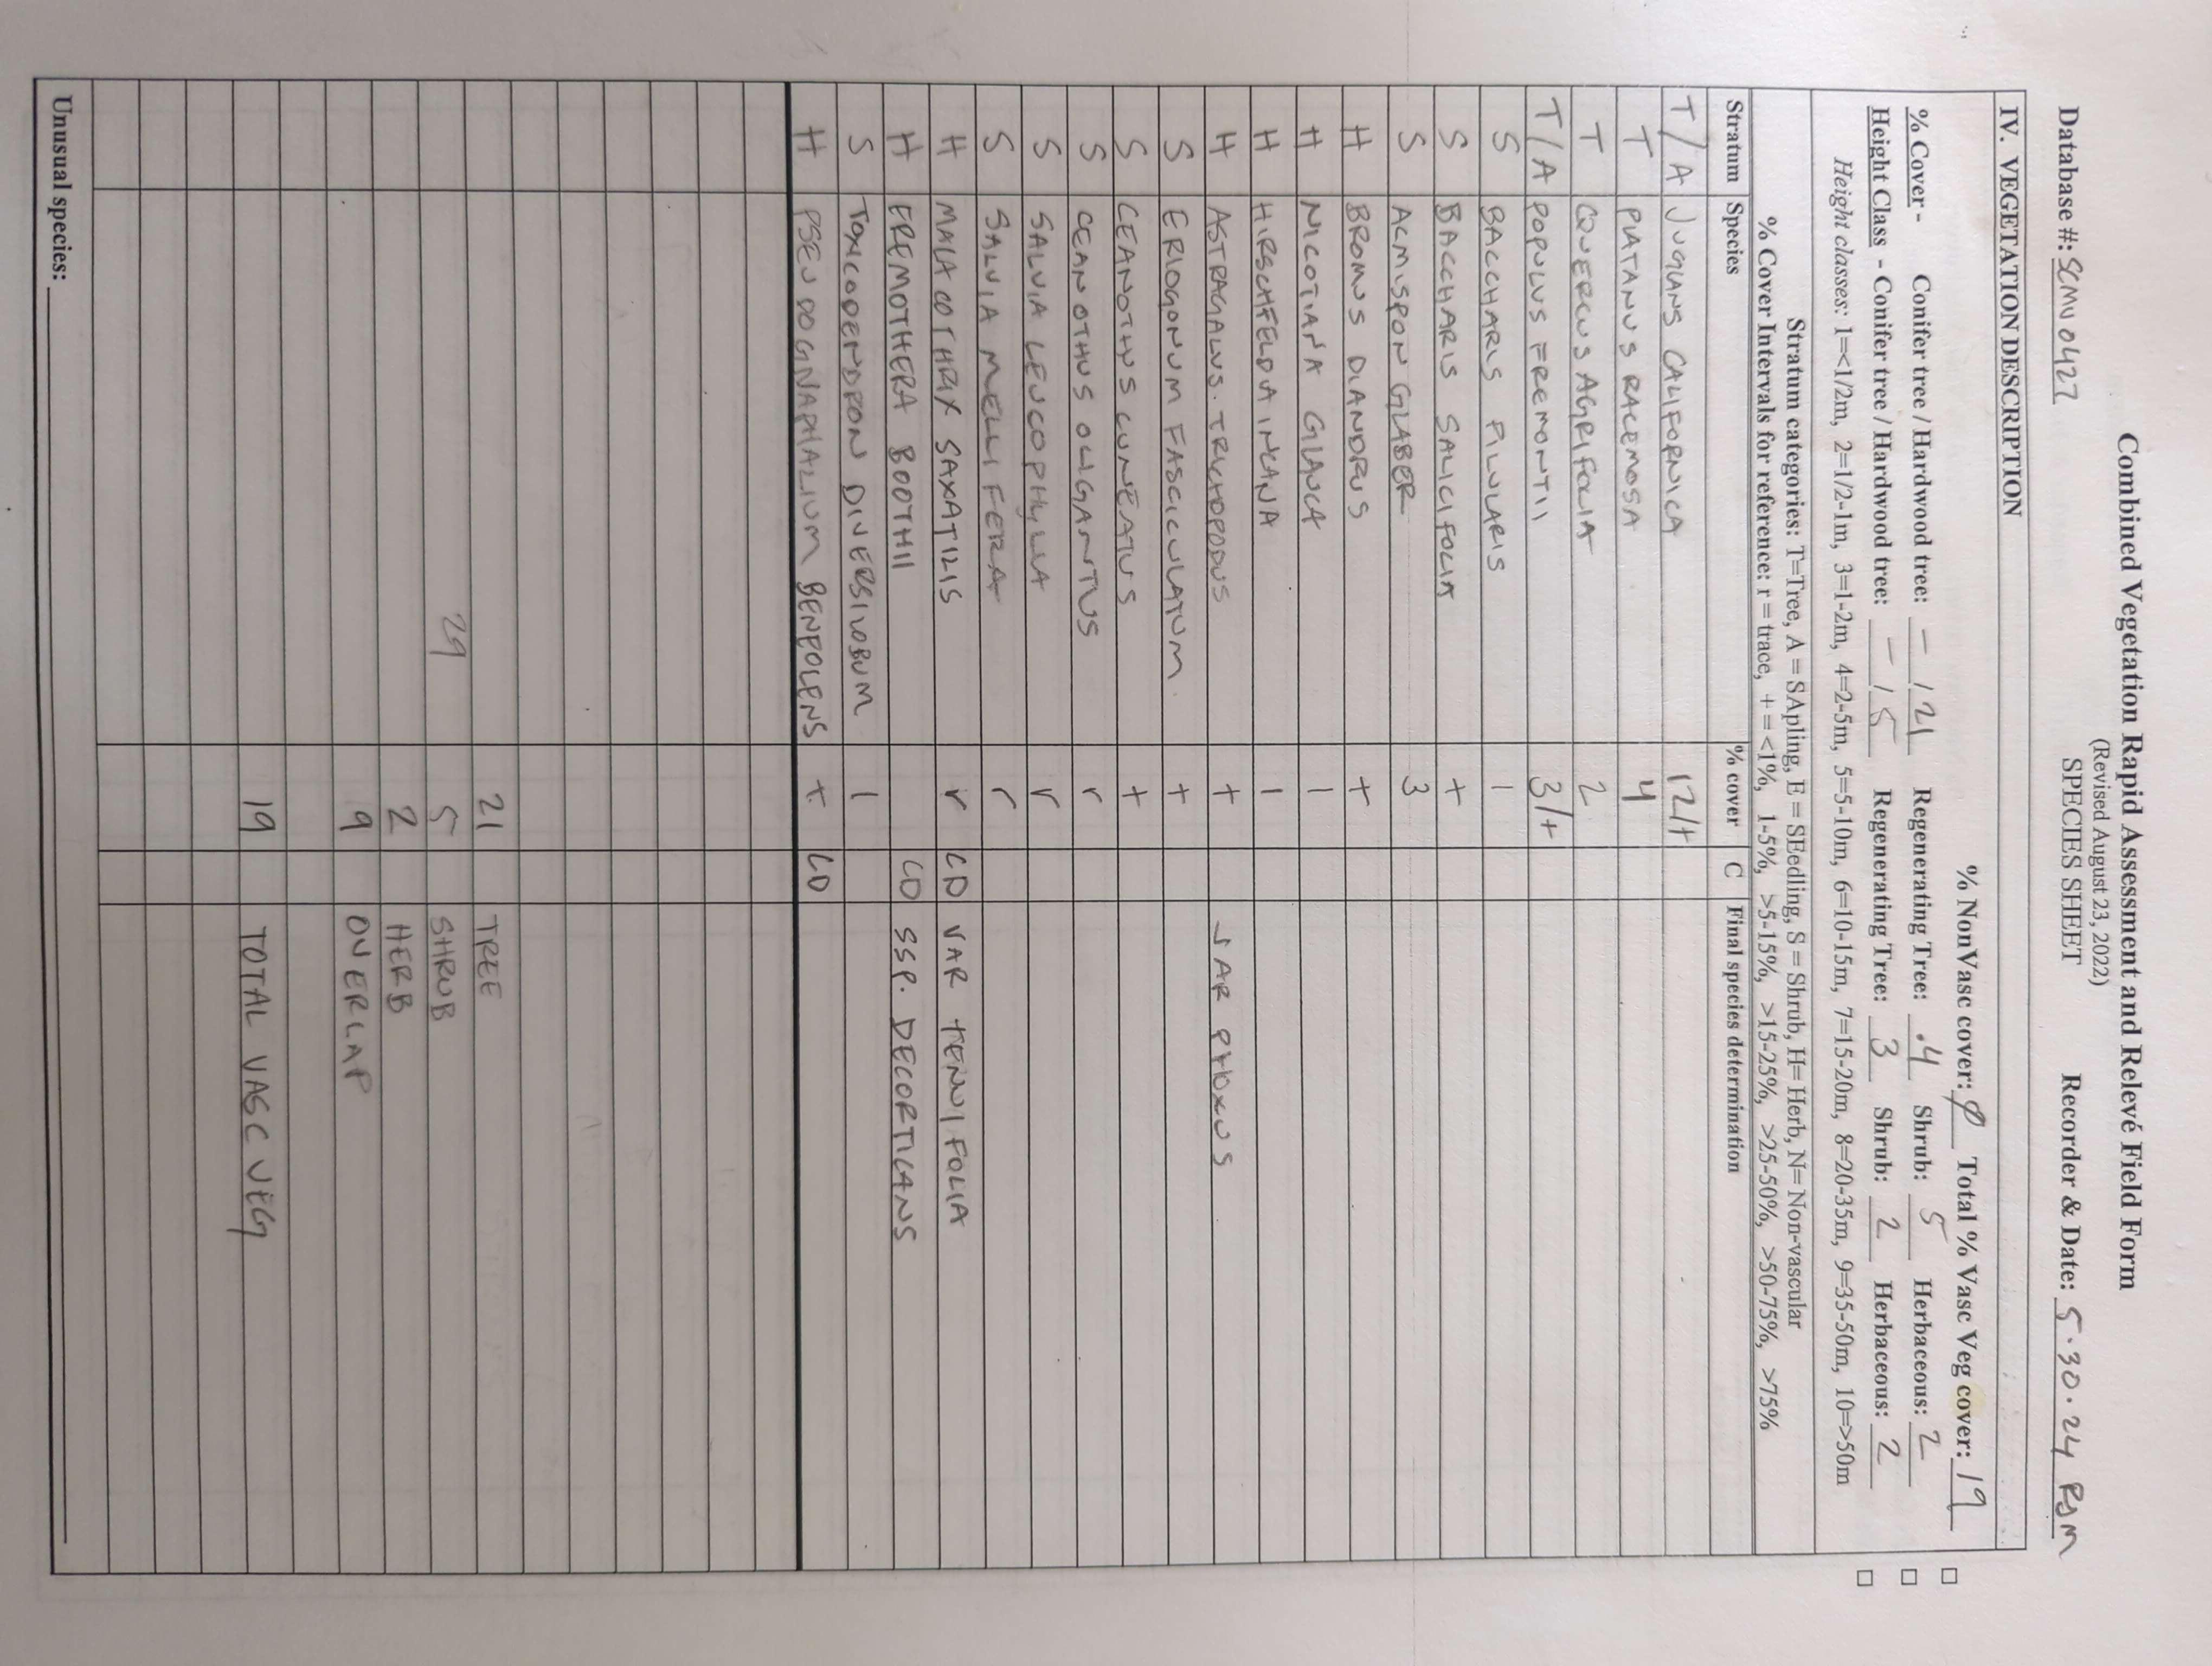 Combined Vegetation Rapid Assessment and Relevé Field Form
(Revised August 23, 2022)
Database #: SCMV0427 SPECIES SHEET Recorder & Date: 5.30.24 PSM
IV. VEGETATION DESCRIPTION
% NonVasc cover: Ø Total % Vasc Veg cover: 19
% Cover - Conifer tree / Hardwood tree: - / 21 Regenerating Tree: .4 Shrub: 5 Herbaceous: 2
Height Class - Conifer tree / Hardwood tree: - / 5 Regenerating Tree: 3 Shrub: 2 Herbaceous: 2
Height classes: 1=<1/2m, 2=1/2-1m, 3=1-2m, 4=2-5m, 5=5-10m, 6=10-15m, 7=15-20m, 8=20-35m, 9=35-50m, 10=>50m
Stratum categories: T=Tree, A = SApling, E = SEedling, S = Shrub, H= Herb, N= Non-vascular
% Cover Intervals for reference: r = trace, + = <1%, 1-5%, >5-15%, >15-25%, >25-50%, >50-75%, >75%
Stratum Species % cover C Final species determination
T/A JUGLANS CALIFORNICA 12/+
T PLATANUS RACEMOSA 4
T QUERCUS AGRIFOLIA 2
T/A POPULUS FREMONTII 3/+
S BACCHARIS PILULARIS 1
S BACCHARIS SALICIFOLIA +
S ACMISPON GLABER 3
H BROMUS DIANDRUS +
H NICOTIANA GLAUCA 1
H HIRSCHFELDIA INCANA 1
H ASTRAGALUS TRICHOPODUS + VAR PHOXUS
S ERIOGONUM FASCICULATUM +
S CEANOTHUS CUNEATUS +
S CEANOTHUS OLIGANTUS r
S SALVIA LEUCOPHYLLA r
S SALVIA MELLIFERA r
H MALACOTHRIX SAXATILIS r CD VAR TENUIFOLIA
H EREMOTHERA BOOTHII CD SSP. DECORTICANS
S TOXICODENDRON DIVERSILOBUM 1
H PSEUDOGNAPHALIUM BENEOLENS + CD
21 TREE
29 5 SHRUB
2 HERB
9 OVERLAP
19 TOTAL VASC VEG
Unusual species: